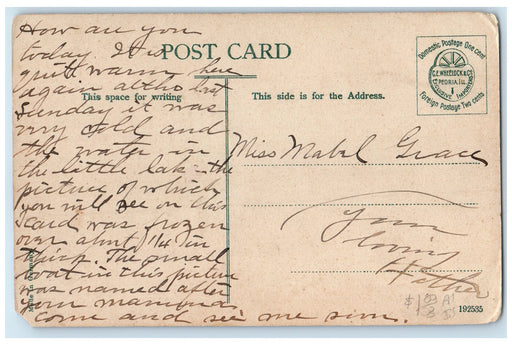 How are you
today It is
quite warm here
again altho last
Sunday it was
very cold and
the water in
the little lake the
picture of which
you will see on this
card was frozen
over about 1/4 in
thick. The small
boat in this picture
was named after
your mamma
come and see me
POST CARD
This space for writing
This side is for the Address.
Domestic Postage One cent
C.E. WHEELOCK & CO.
PEORIA, ILL.
EXCLUSIVE IMPORTERS
Foreign Postage Two cents
Miss Mabel Grace
Your
loving
Father
Made in
192535